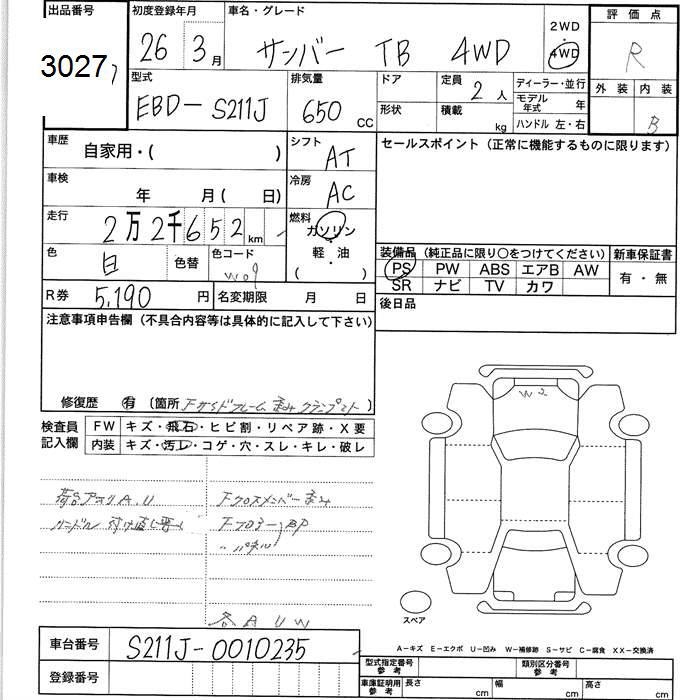 出品番号 初度登録年月 車名・グレード 評価点
3027 26 3月 サンバー TB 4WD 2WD・4WD R
型式 排気量 ドア 定員 2人 ディーラー・並行 外装 内装
EBD-S211J 650 CC 形状 積載 kg モデル年式 年 B
ハンドル 左・右
車歴 自家用・( ) シフト AT セールスポイント(正常に機能するものに限ります)
車検 年 月( 日) 冷房 AC
走行 2万2千652km 燃料 ガソリン・軽油・( )
色 白 色替 色コード W09
装備品(純正品に限り○をつけてください) 新車保証書
PS PW ABS エアB AW 有・無
SR ナビ TV カワ
R券 5,190円 名変期限 月 日 後日品
注意事項申告欄(不具合内容等は具体的に記入して下さい)
修復歴 有 (箇所 Fサイドフレーム歪みクランプ )
検査員記入欄 FW キズ・飛石・ヒビ割・リペア跡・X要
内装 キズ・汚れ・コゲ・穴・スレ・キレ・破レ
W2
荷台アオリA.U Fクロスメンバー歪み
ハンドル Fフロアー BP
〃パネル
各AUW
スペア
A-キズ E-エクボ U-凹み W-補修跡 S-サビ C-腐食 XX-交換済
車台番号 S211J-0010235
型式指定番号 参考 類別区分番号 参考
登録番号 車庫証明用 参考 長さ cm 幅 cm 高さ cm